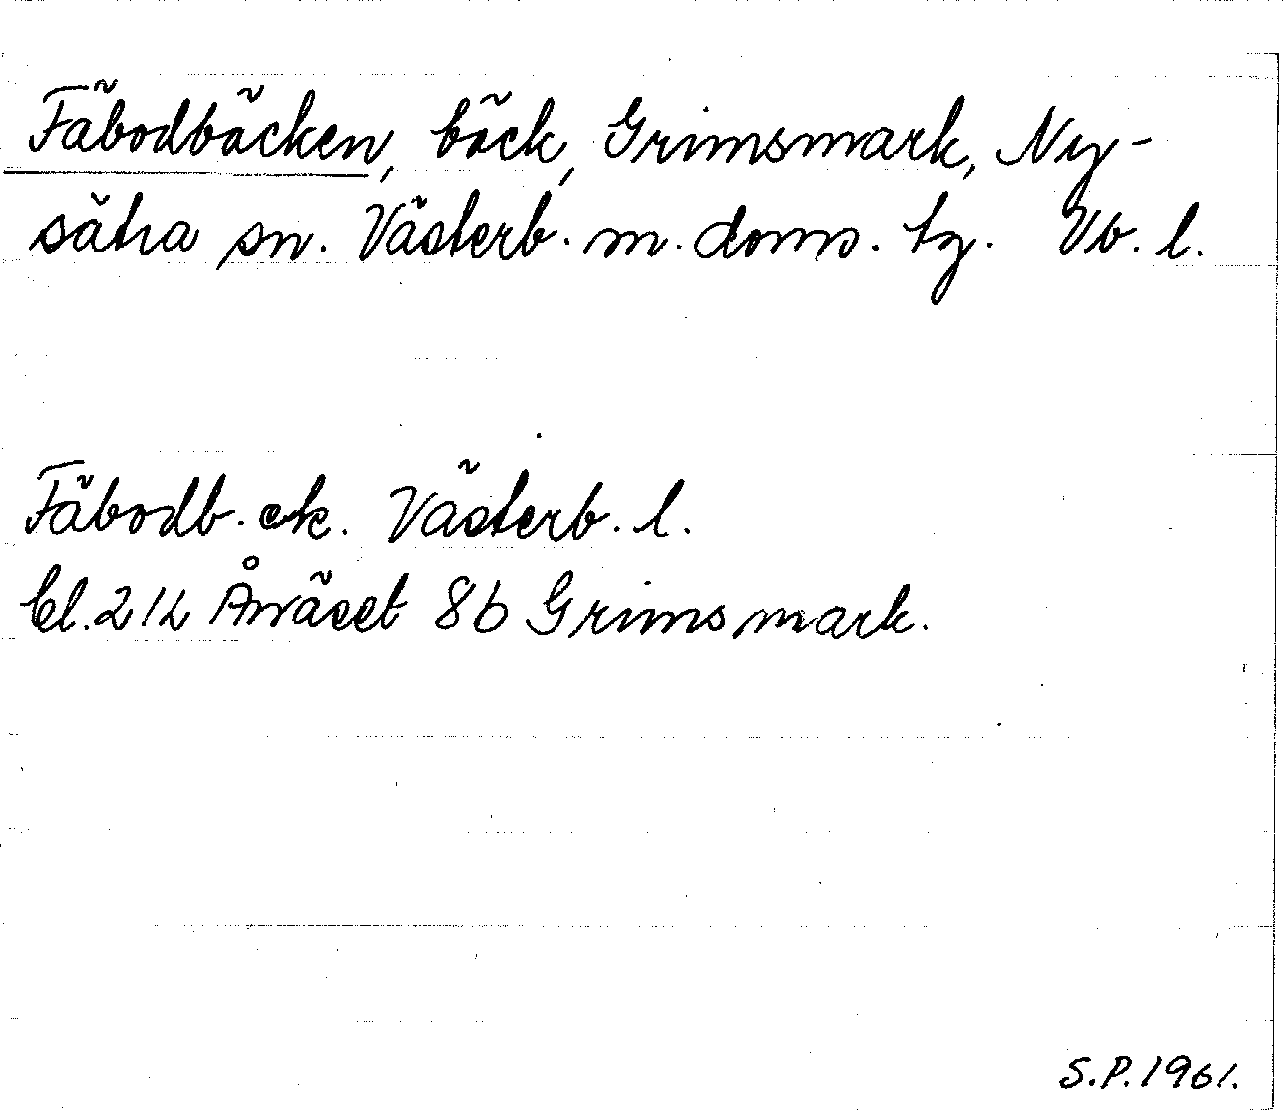 Fäbodbäcken, bäck, Grimsmark, Ny-
sätra sn. Västerb. m. doms. tg. Vb. l.
Fäbodb. ek. Västerb. l.
bl. 21L Ånäset 8b Grimsmark.
S.P. 1961.